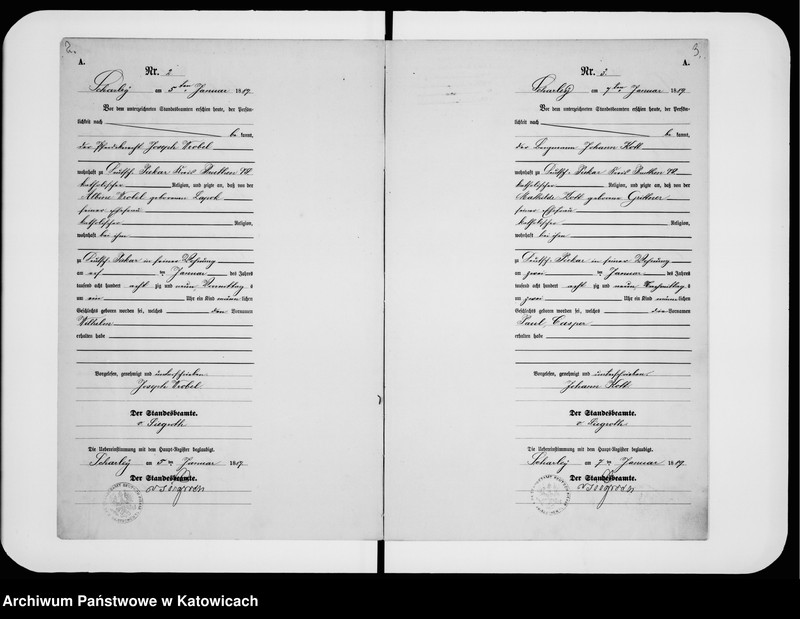 2.
A.
Nr. 2
Scharley am 5ten Januar 1889.
Vor dem unterzeichneten Standesbeamten erschien heute, der Persön-
lichkeit nach
be kannt,
der Pferdeknecht Joseph Wrobel
wohnhaft zu Deutsch Piekar Kreis Beuthen
katholischer Religion, und zeigte an, daß von der
Wrobel geborenen
seiner Ehefrau
katholischer Religion,
wohnhaft bei ihm
zu Deutsch Piekar in seiner Wohnung
am Januar des Jahres
tausend acht hundert acht zig und neun Vormittag s
um ein Uhr ein Kind männ lichen
Geschlechts geboren worden sei, welches den Vornamen
Wilhelm
erhalten habe
Vorgelesen, genehmigt und unterschrieben
Joseph Wrobel
Der Standesbeamte.
v Siegroth
Die Uebereinstimmung mit dem Haupt-Register beglaubigt.
Scharley am 5ten Januar 1889
Der Standesbeamte.
v Siegroth
3.
A.
Nr. 3.
Scharley am 7ten Januar 1889.
Vor dem unterzeichneten Standesbeamten erschien heute, der Persön-
lichkeit nach
be kannt,
der Bergmann Johann Kott
wohnhaft zu Deutsch Piekar Kreis Beuthen
katholischer Religion, und zeigte an, daß von der
Mathilde Kott geborene
seiner Ehefrau
katholischer Religion,
wohnhaft bei ihm
zu Deutsch Piekar in seiner Wohnung
am zwei ten Januar des Jahres
tausend acht hundert acht zig und neun Nachmittag s
um zwei Uhr ein Kind männ lichen
Geschlechts geboren worden sei, welches die Vornamen
Paul, Casper
erhalten habe
Vorgelesen, genehmigt und unterschrieben
Johann Kott
Der Standesbeamte.
v Siegroth
Die Uebereinstimmung mit dem Haupt-Register beglaubigt.
Scharley am 7ten Januar 1889.
Der Standesbeamte.
v Siegroth
Archiwum Państwowe w Katowicach